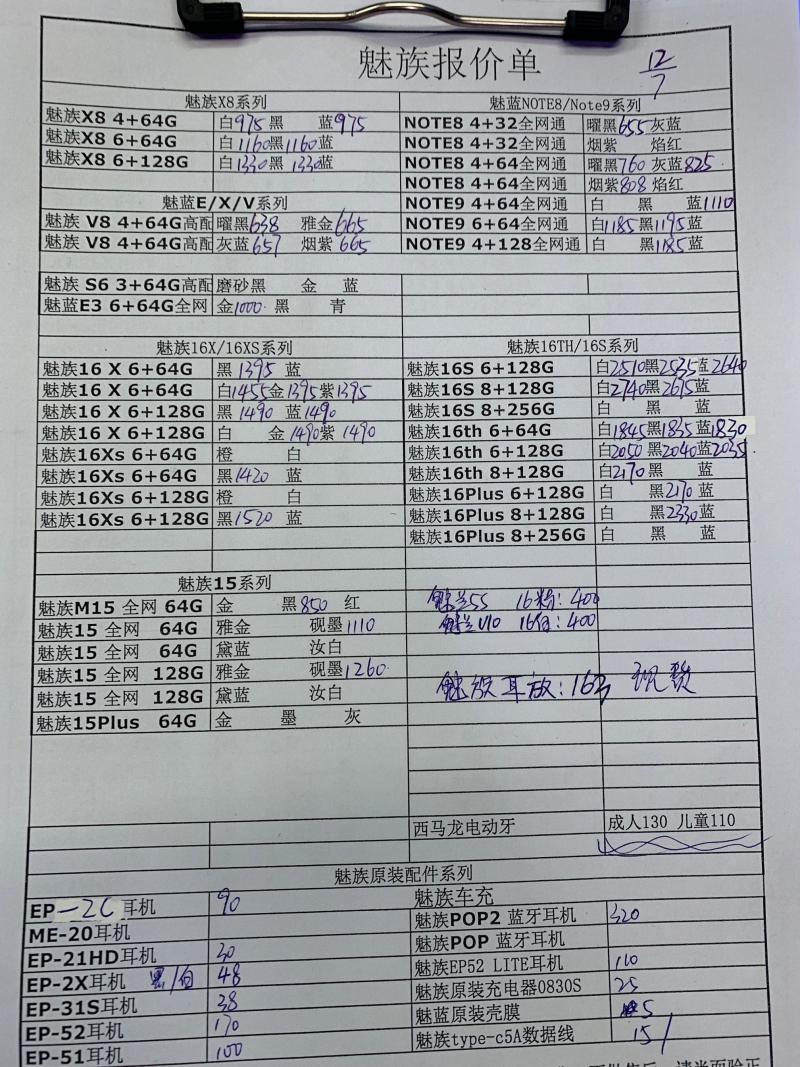 魅族报价单 12/7
魅族X8系列
魅族X8 4+64G 白975 黑 蓝975
魅族X8 6+64G 白1160黑1160蓝
魅族X8 6+128G 白1330黑 1330蓝
魅蓝E/X/V系列
魅族 V8 4+64G高配 曜黑638 雅金665
魅族 V8 4+64G高配 灰蓝657 烟紫 665
魅族 S6 3+64G高配 磨砂黑 金 蓝
魅蓝E3 6+64G全网 金1000 黑 青
魅蓝NOTE8/Note9系列
NOTE8 4+32全网通 曜黑655灰蓝
NOTE8 4+32全网通 烟紫 焰红
NOTE8 4+64全网通 曜黑760 灰蓝825
NOTE8 4+64全网通 烟紫808 焰红
NOTE9 4+64全网通 白 黑 蓝1110
NOTE9 6+64全网通 白1185黑1195蓝
NOTE9 4+128全网通 白 黑1185蓝
魅族16X/16XS系列
魅族16 X 6+64G 黑 1395 蓝
魅族16 X 6+64G 白1455金1395紫1395
魅族16 X 6+128G 黑 1490 蓝1490
魅族16 X 6+128G 白 金1490紫 1490
魅族16Xs 6+64G 橙 白
魅族16Xs 6+64G 黑1420 蓝
魅族16Xs 6+128G 橙 白
魅族16Xs 6+128G 黑1520 蓝
魅族16TH/16S系列
魅族16S 6+128G 白2510黑2535蓝2640
魅族16S 8+128G 白2740黑2675蓝
魅族16S 8+256G 白 黑 蓝
魅族16th 6+64G 白1845黑1835蓝1830
魅族16th 6+128G 白2050黑2040蓝2035
魅族16th 8+128G 白2170黑 蓝
魅族16Plus 6+128G 白 黑2170蓝
魅族16Plus 8+128G 白 黑2330蓝
魅族16Plus 8+256G 白 黑 蓝
魅族15系列
魅族M15 全网 64G 金 黑850 红
魅族15 全网 64G 雅金 砚墨1110
魅族15 全网 64G 黛蓝 汝白
魅族15 全网 128G 雅金 砚墨1260
魅族15 全网 128G 黛蓝 汝白
魅族15Plus 64G 金 墨 灰
魅兰5S 16粉:400
魅兰U10 16白:400
魅族耳放:163 现款
西马龙电动牙 成人130 儿童110
魅族原装配件系列
EP-2C耳机 90
ME-20耳机
EP-21HD耳机 30
EP-2X耳机 黑/白 48
EP-31S耳机 38
EP-52耳机 170
EP-51耳机 100
魅族车充
魅族POP2 蓝牙耳机 320
魅族POP 蓝牙耳机
魅族EP52 LITE耳机 110
魅族原装充电器0830S 25
魅蓝原装壳膜 5
魅族type-c5A数据线 15